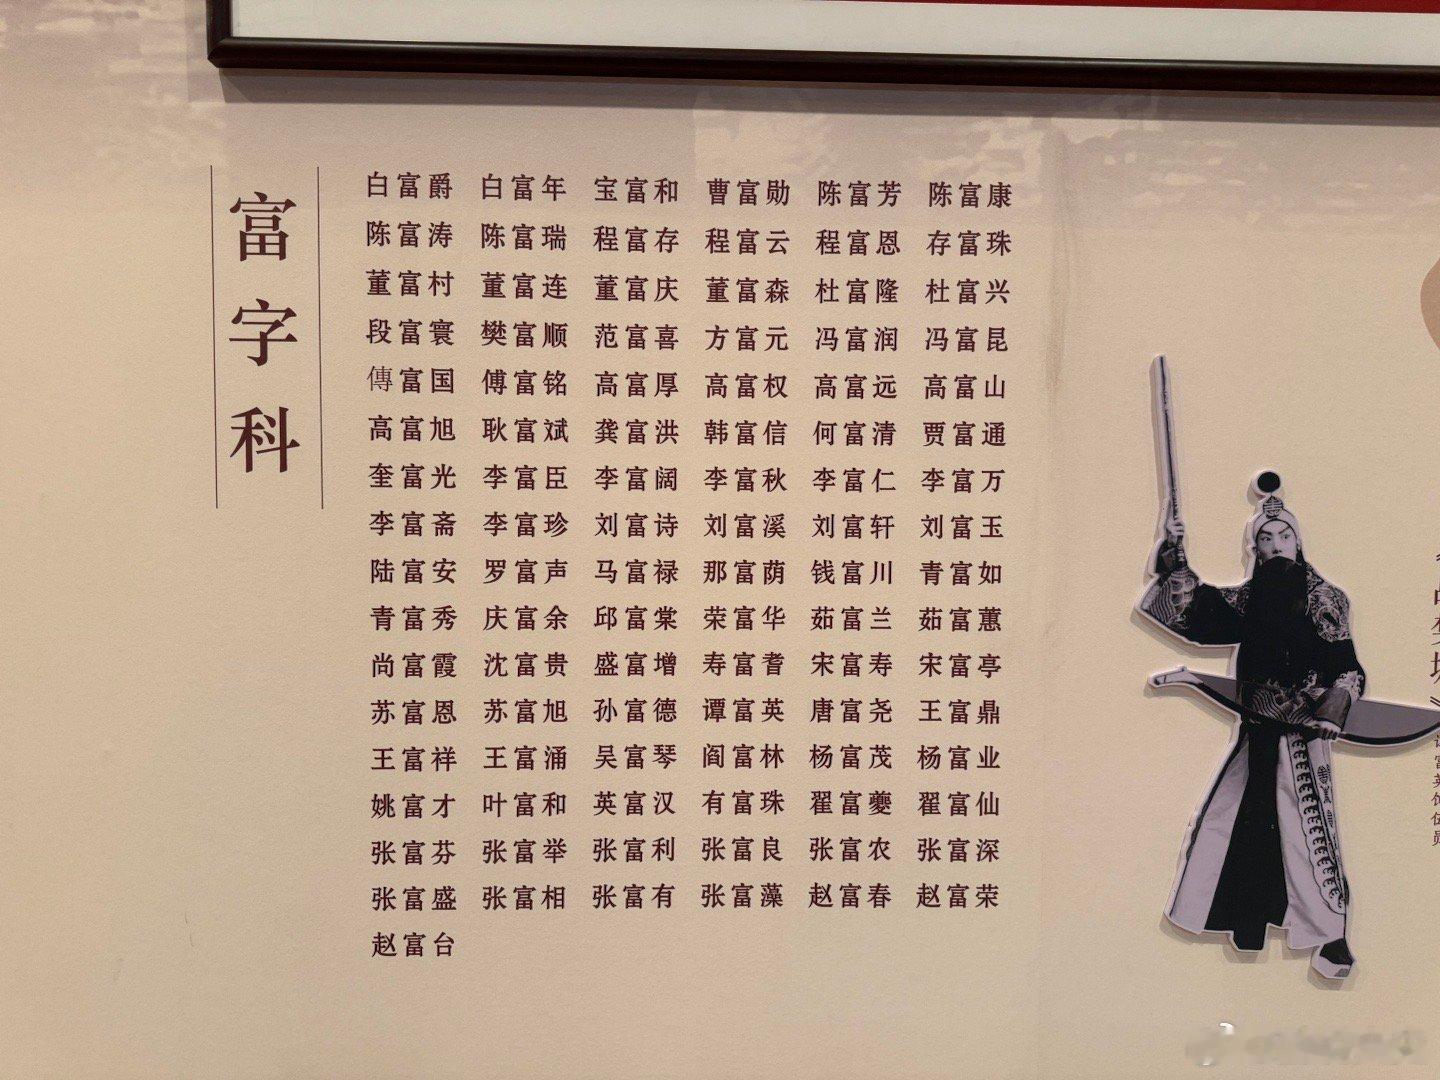 富字科
白富爵 白富年 宝富和 曹富勋 陈富芳 陈富康
陈富涛 陈富瑞 程富存 程富云 程富恩 存富珠
董富村 董富连 董富庆 董富森 杜富隆 杜富兴
段富寰 樊富顺 范富喜 方富元 冯富润 冯富昆
傅富国 傅富铭 高富厚 高富权 高富远 高富山
高富旭 耿富斌 龚富洪 韩富信 何富清 贾富通
奎富光 李富臣 李富阔 李富秋 李富仁 李富万
李富斋 李富珍 刘富诗 刘富溪 刘富轩 刘富玉
陆富安 罗富声 马富禄 那富荫 钱富川 青富如
青富秀 庆富余 邱富棠 荣富华 茹富兰 茹富蕙
尚富霞 沈富贵 盛富增 寿富耆 宋富寿 宋富亭
苏富恩 苏富旭 孙富德 谭富英 唐富尧 王富鼎
王富祥 王富涌 吴富琴 阎富林 杨富茂 杨富业
姚富才 叶富和 英富汉 有富珠 翟富夔 翟富仙
张富芬 张富举 张富利 张富良 张富农 张富深
张富盛 张富相 张富有 张富藻 赵富春 赵富荣
赵富台